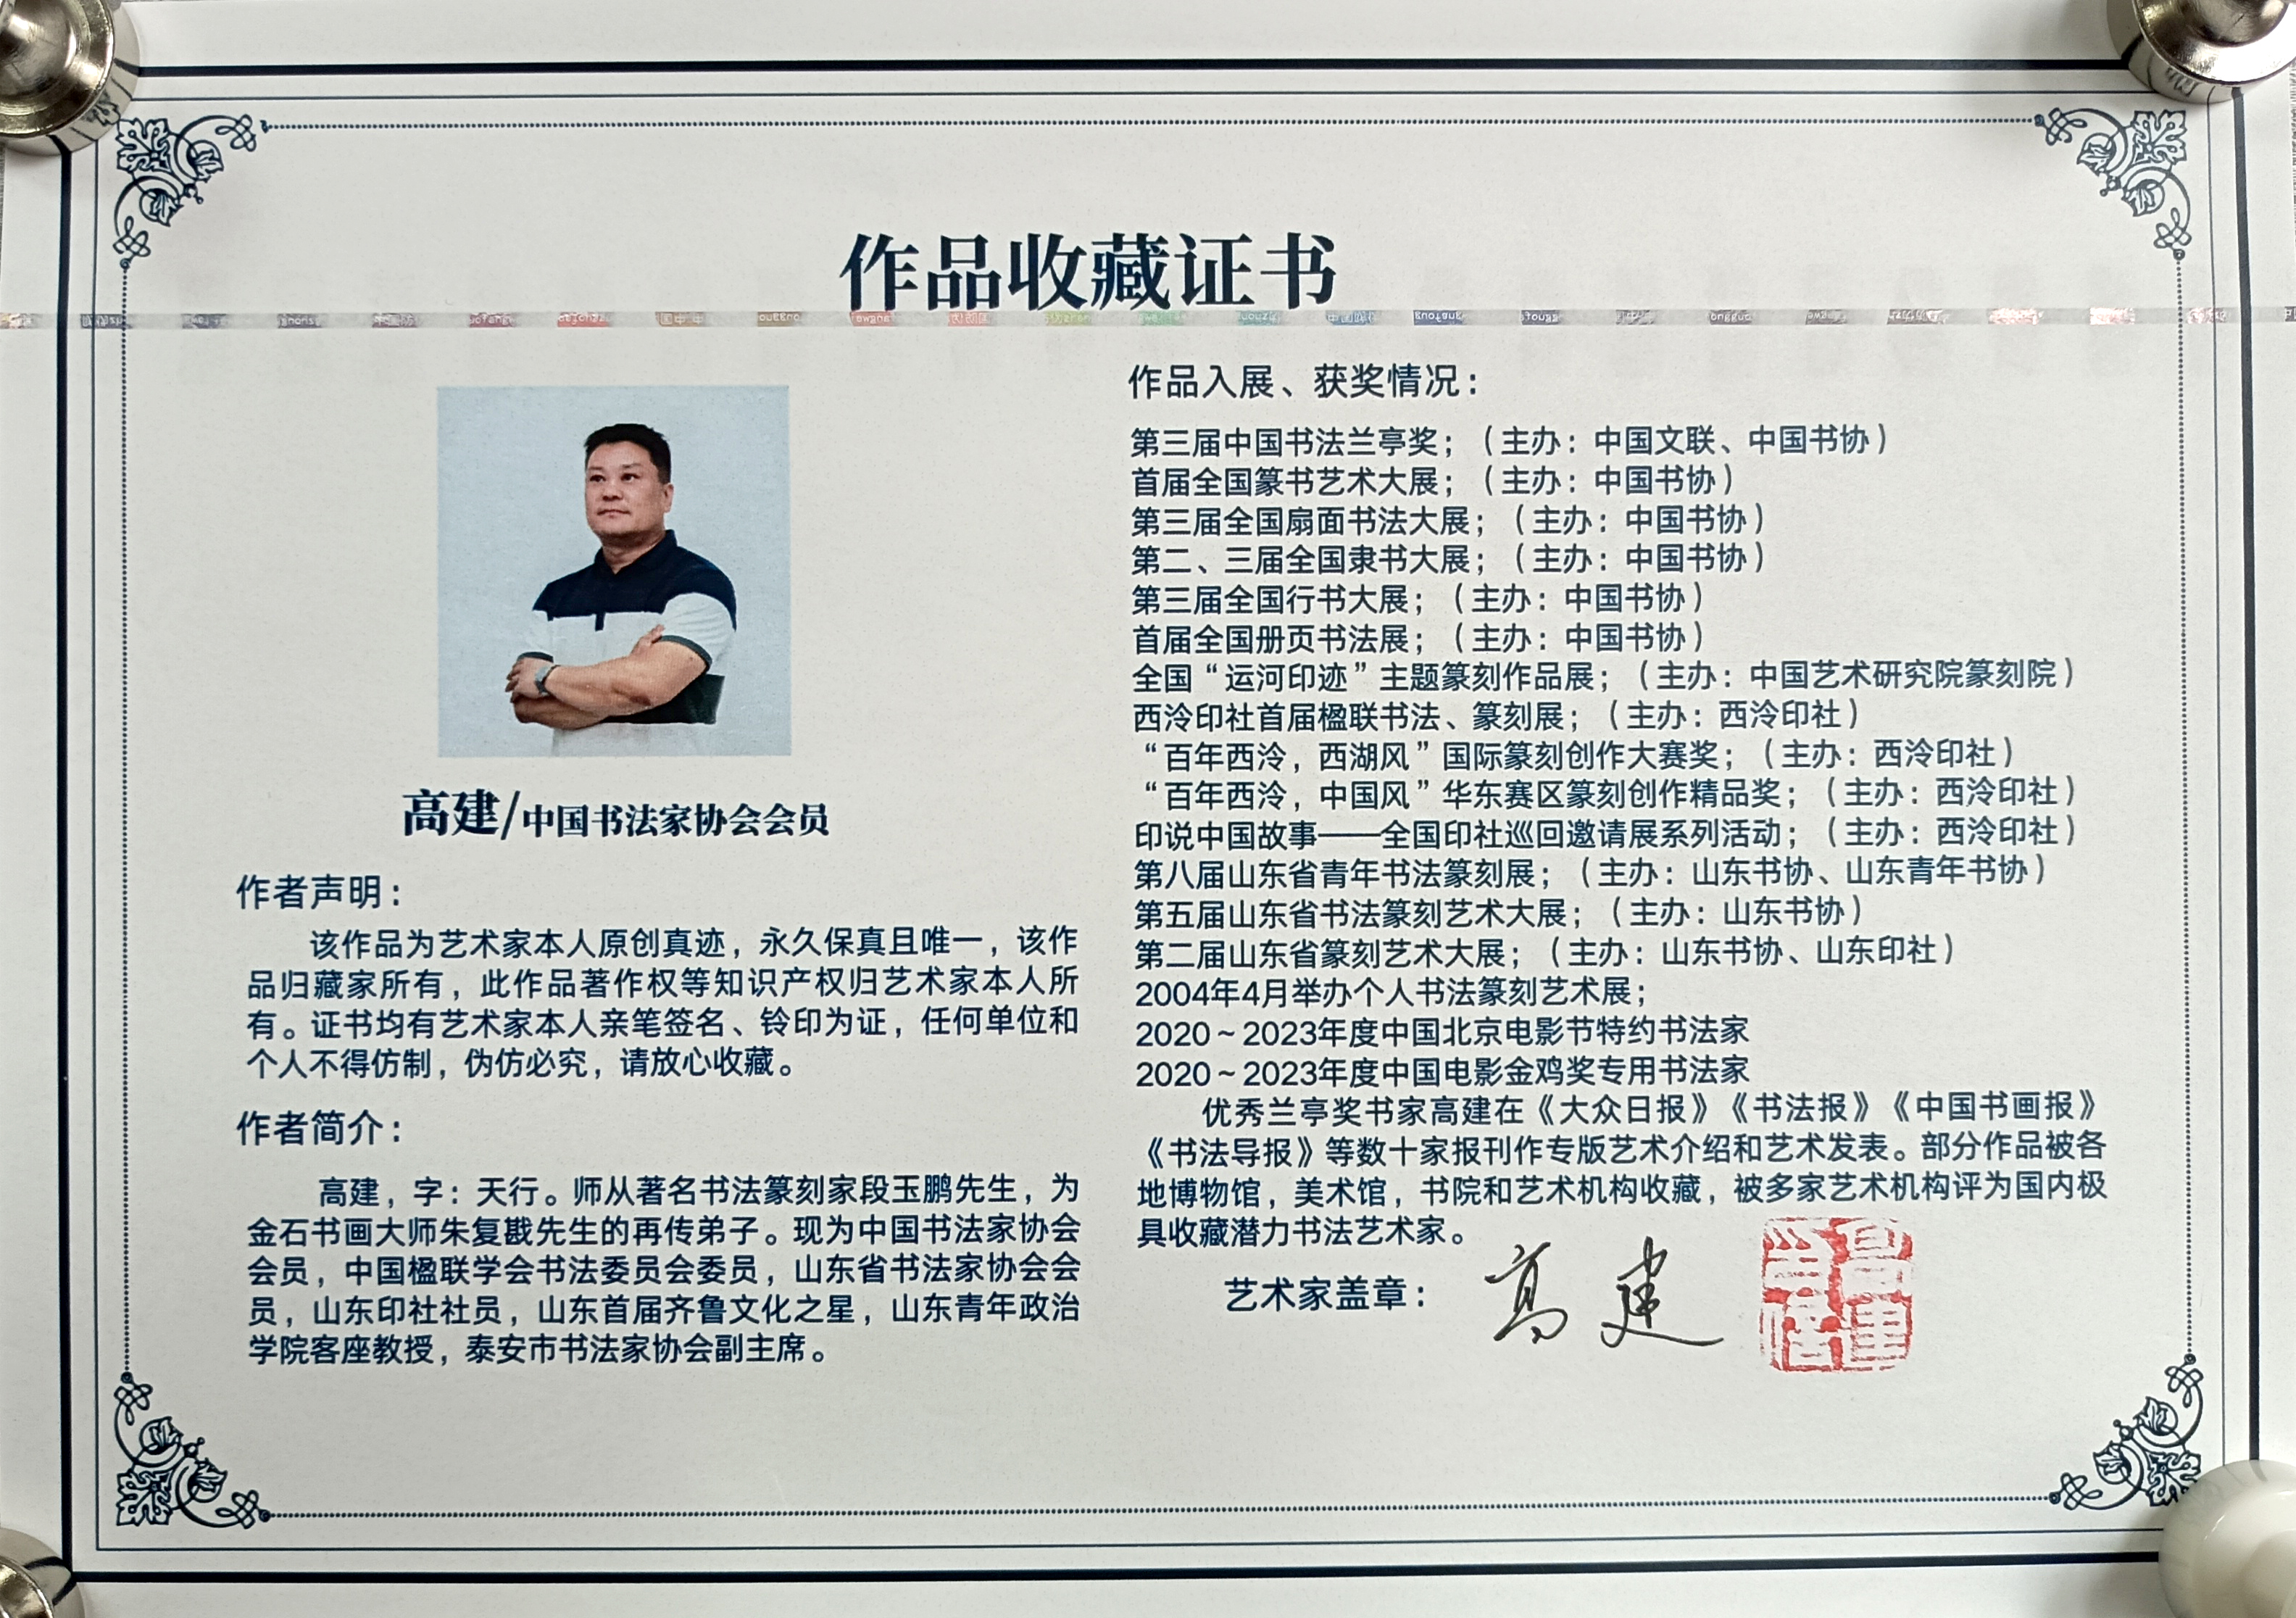 作品收藏证书
高建/中国书法家协会会员
作者声明：
该作品为艺术家本人原创真迹，永久保真且唯一，该作
品归藏家所有，此作品著作权等知识产权归艺术家本人所
有。证书均有艺术家本人亲笔签名、铃印为证，任何单位和
个人不得仿制，伪仿必究，请放心收藏。
作者简介：
高建，字：天行。师从著名书法篆刻家段玉鹏先生，为
金石书画大师朱复戡先生的再传弟子。现为中国书法家协会
会员，中国楹联学会书法委员会委员，山东省书法家协会会
员，山东印社社员，山东首届齐鲁文化之星，山东青年政治
学院客座教授，泰安市书法家协会副主席。
作品入展、获奖情况：
第三届中国书法兰亭奖；（主办：中国文联、中国书协）
首届全国篆书艺术大展；（主办：中国书协）
第三届全国扇面书法大展；（主办：中国书协）
第二、三届全国隶书大展；（主办：中国书协）
第三届全国行书大展；（主办：中国书协）
首届全国册页书法展；（主办：中国书协）
全国“运河印迹”主题篆刻作品展；（主办：中国艺术研究院篆刻院）
西泠印社首届楹联书法、篆刻展；（主办：西泠印社）
“百年西泠，西湖风”国际篆刻创作大赛奖；（主办：西泠印社）
“百年西泠，中国风”华东赛区篆刻创作精品奖；（主办：西泠印社）
印说中国故事——全国印社巡回邀请展系列活动；（主办：西泠印社）
第八届山东省青年书法篆刻展；（主办：山东书协、山东青年书协）
第五届山东省书法篆刻艺术大展；（主办：山东书协）
第二届山东省篆刻艺术大展；（主办：山东书协、山东印社）
2004年4月举办个人书法篆刻艺术展；
2020～2023年度中国北京电影节特约书法家
2020～2023年度中国电影金鸡奖专用书法家
优秀兰亭奖书家高建在《大众日报》《书法报》《中国书画报》
《书法导报》等数十家报刊作专版艺术介绍和艺术发表。部分作品被各
地博物馆，美术馆，书院和艺术机构收藏，被多家艺术机构评为国内极
具收藏潜力书法艺术家。
艺术家盖章：高建